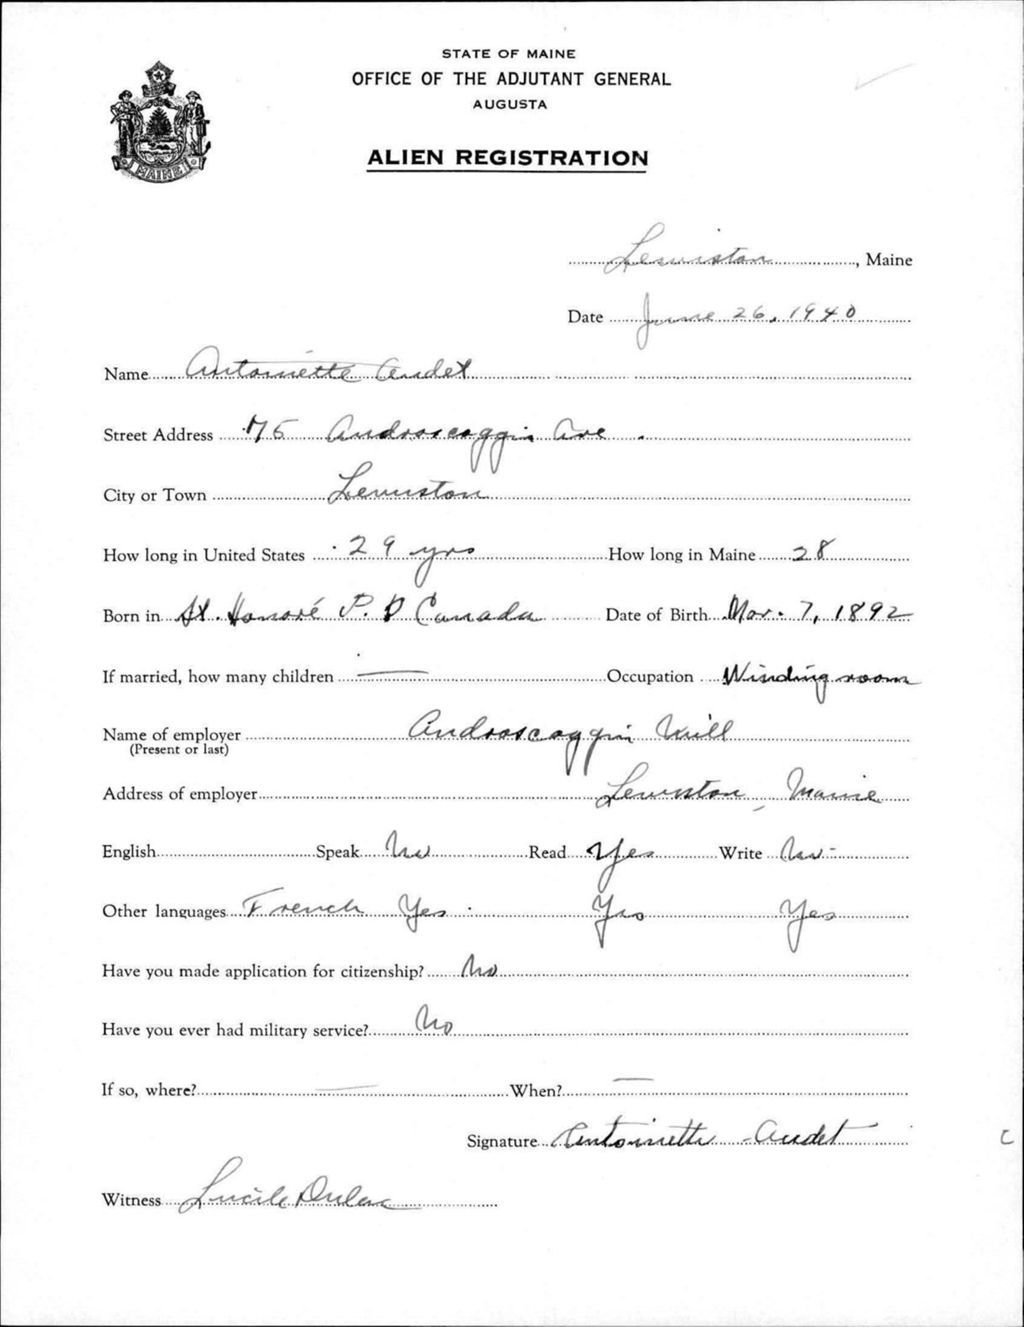 STATE OF MAINE
OFFICE OF THE ADJUTANT GENERAL
AUGUSTA
ALIEN REGISTRATION
MAINE
Lewiston, Maine
Date June 26, 1940
Name Antoinette Audet
Street Address 75 Androscoggin Ave.
City or Town Lewiston
How long in United States 29 yrs How long in Maine 28
Born in St. Honoré P. Q Canada Date of Birth Mar. 7, 1892
If married, how many children — Occupation Winding room
Name of employer Androscoggin Mill
(Present or last)
Address of employer Lewiston, Maine
English Speak No Read Yes Write No
Other languages French Yes Yes Yes
Have you made application for citizenship? No
Have you ever had military service? No
If so, where? — When? —
Signature Antoinette Audet
Witness Lucile Dulac
C